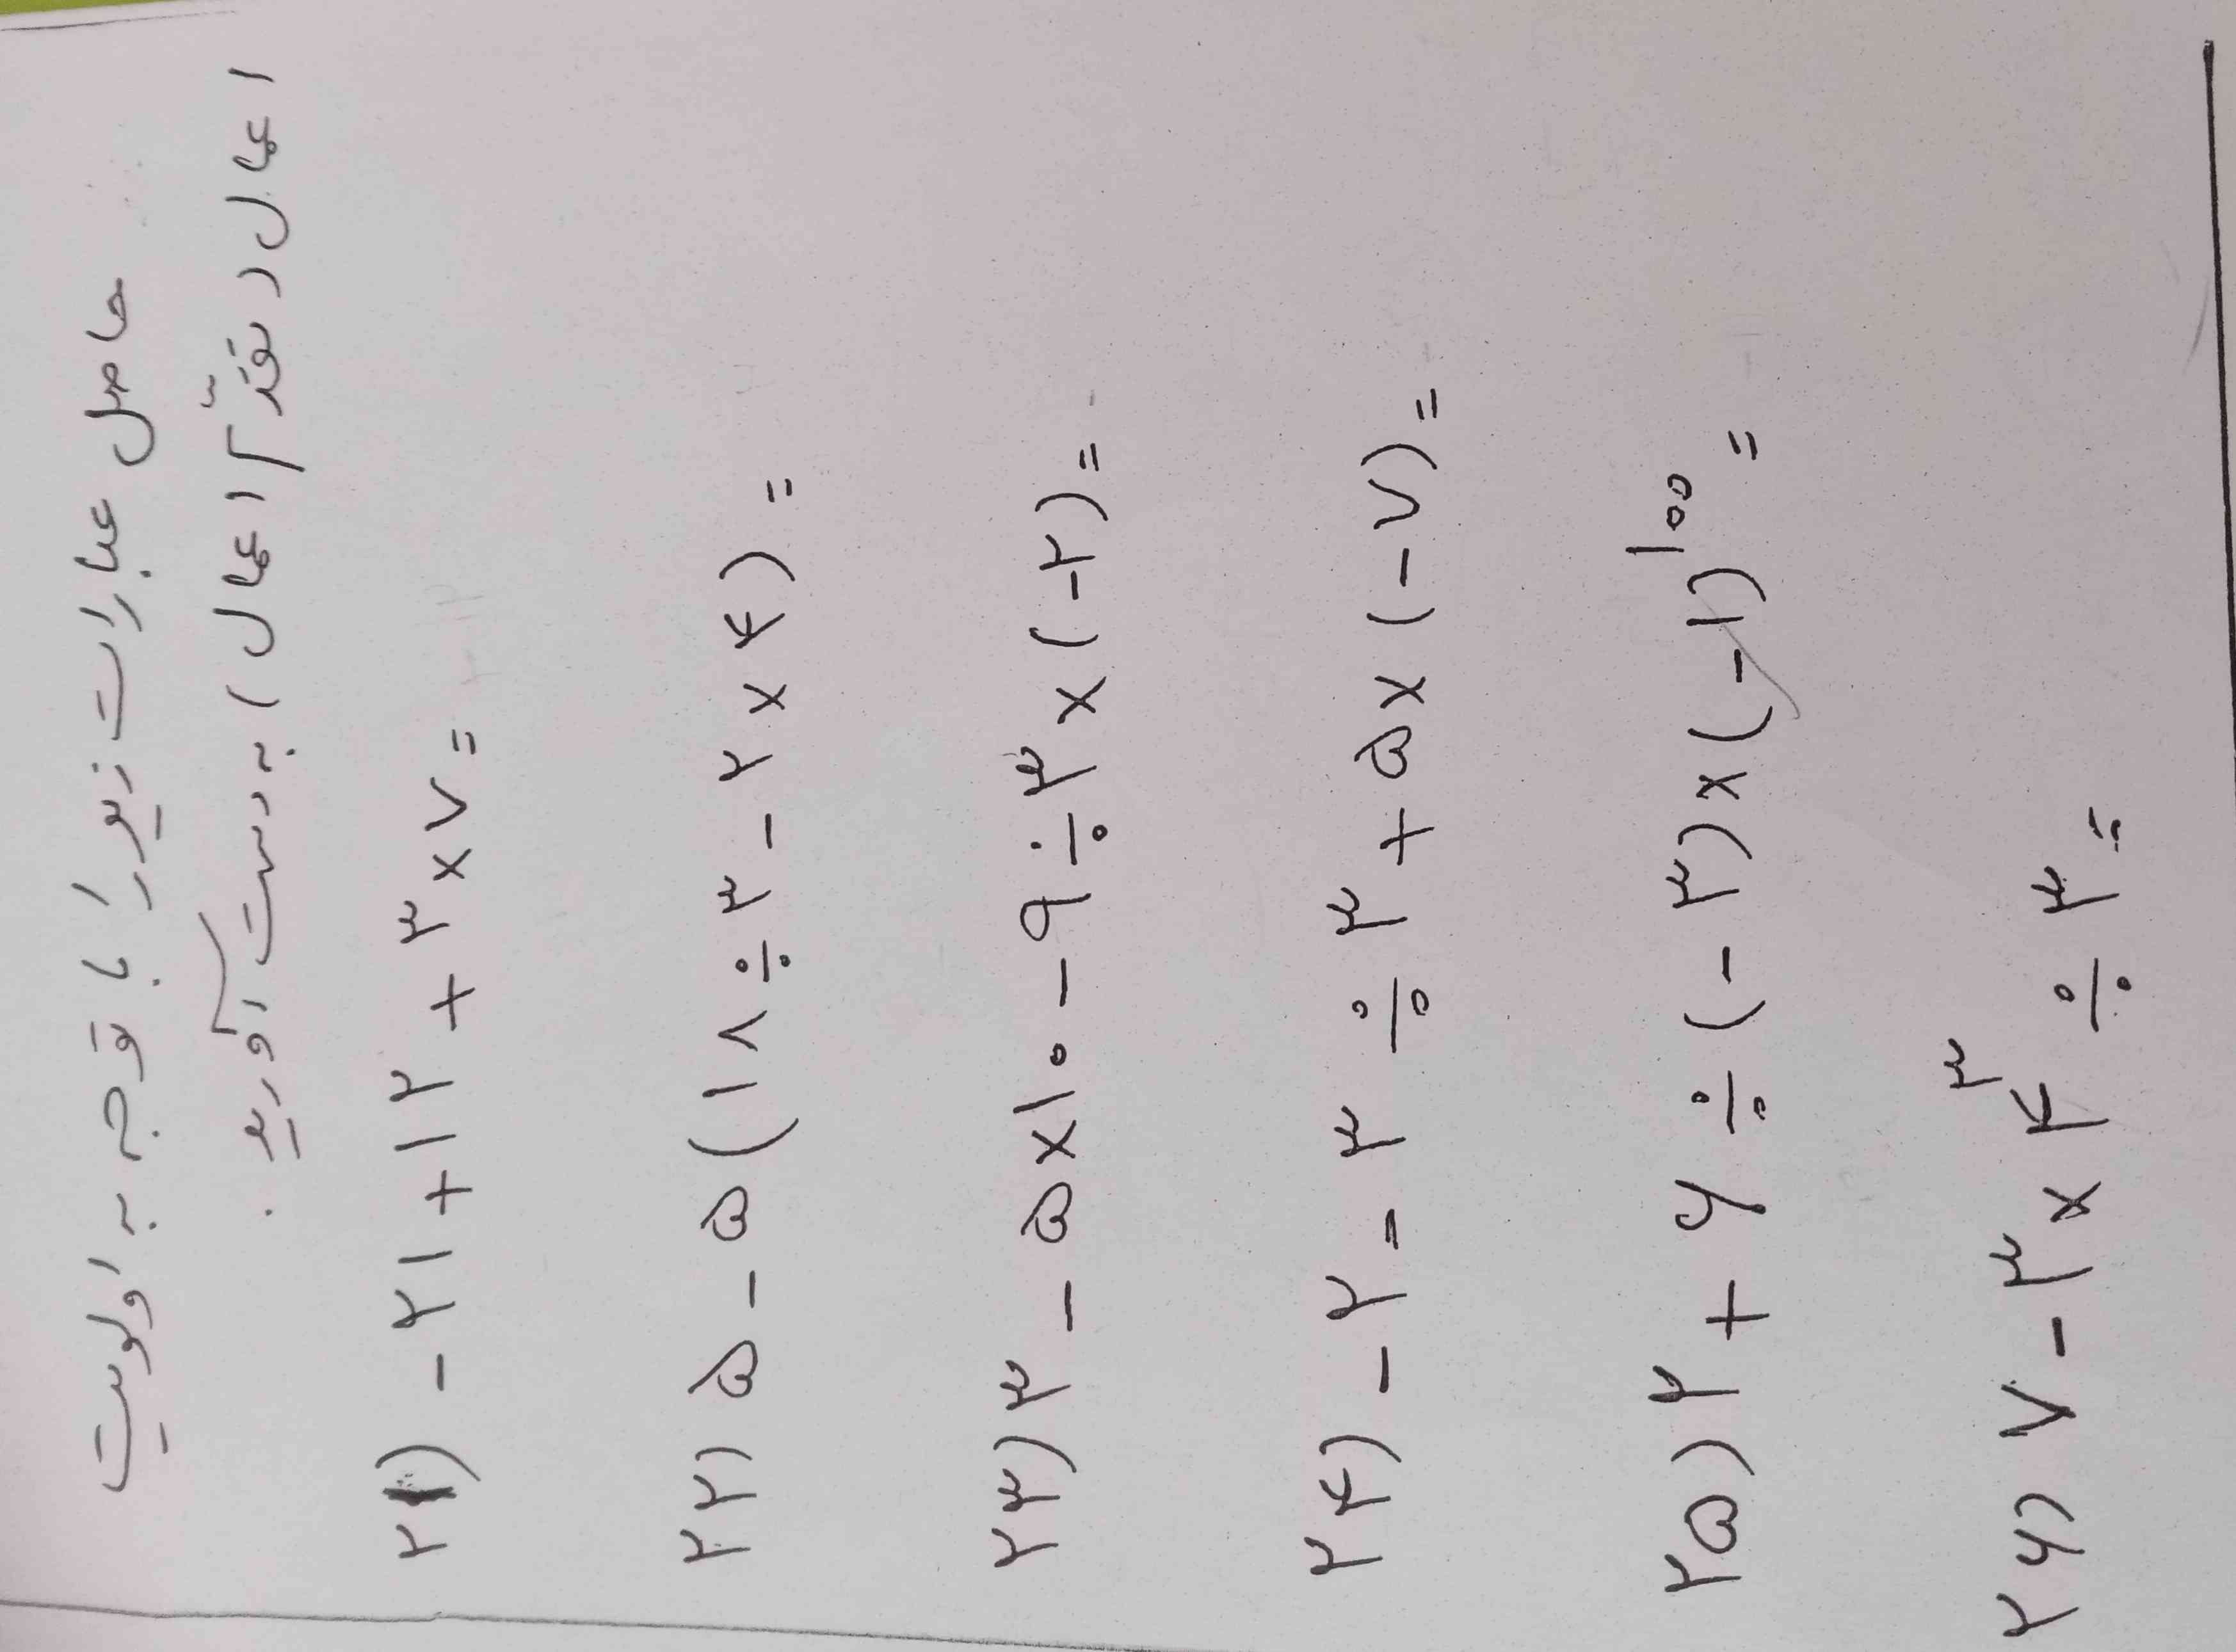 حاصل عبارات زیر را با توجه به اولویت
اعمال (تقدّم اعمال) به دست آورید.
۲۱) -۲۱+۱۲+۳×۷=
۲۲) ۵-۵(۱۸÷۳-۲×۴)=
۲۳) ۳-۵×۱۰-۹÷۳×(-۲)=
۲۴) -۲-۳÷۳+۵×(-۷)=
۲۵) ۲+۶÷(-۳)×(-۱)^۱۰۰=
۲۶) ۷-۳×۴^۳÷۳=